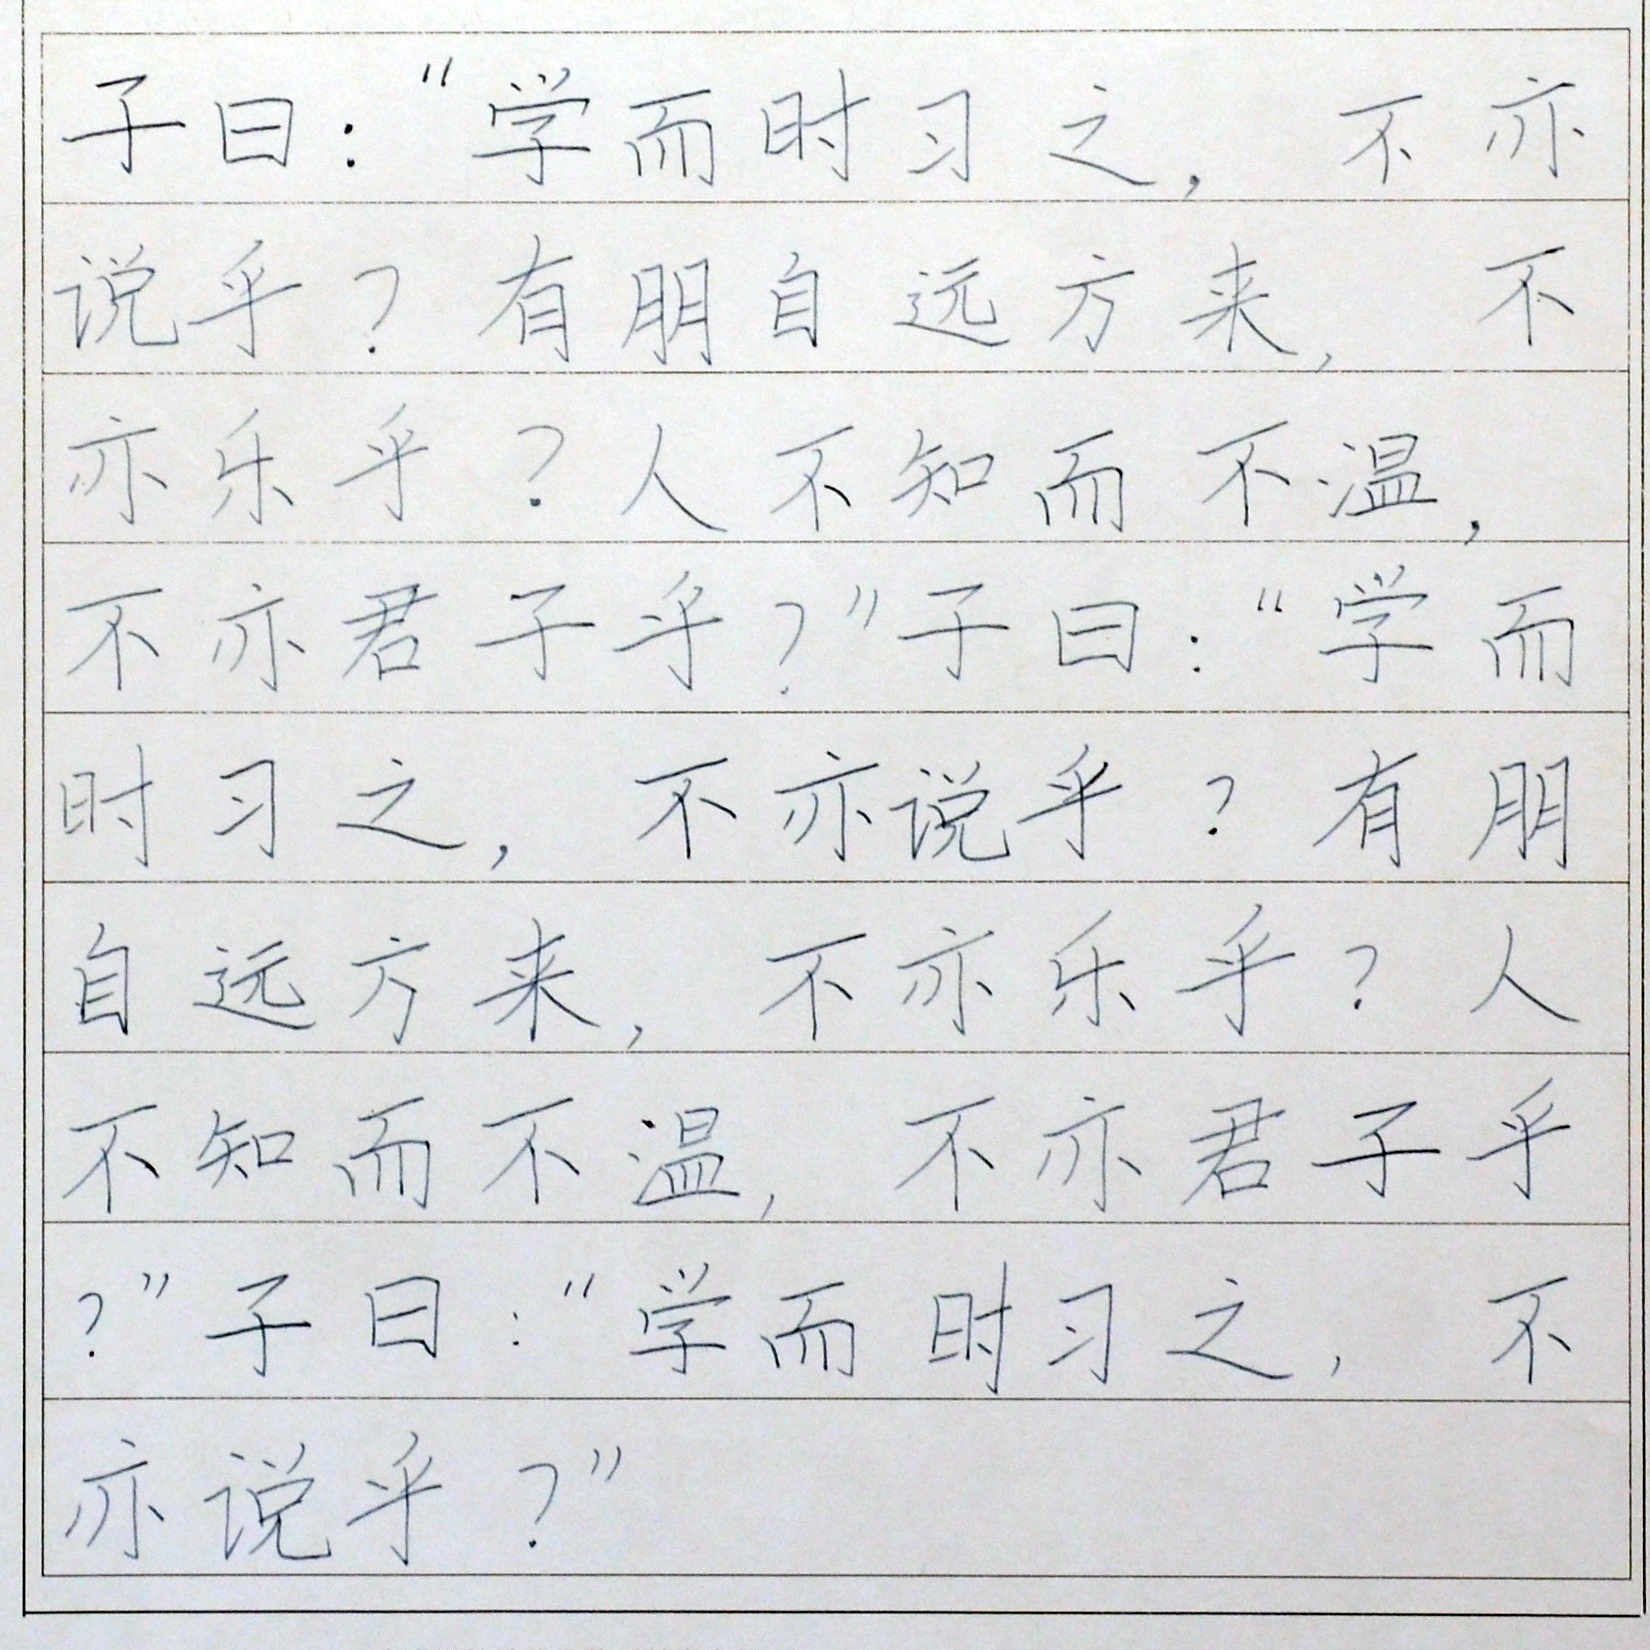 子曰：“学而时习之，不亦
说乎？有朋自远方来，不
亦乐乎？人不知而不温，
不亦君子乎？”子曰：“学而
时习之，不亦说乎？有朋
自远方来，不亦乐乎？人
不知而不温，不亦君子乎
？”子曰：“学而时习之，不
亦说乎？”